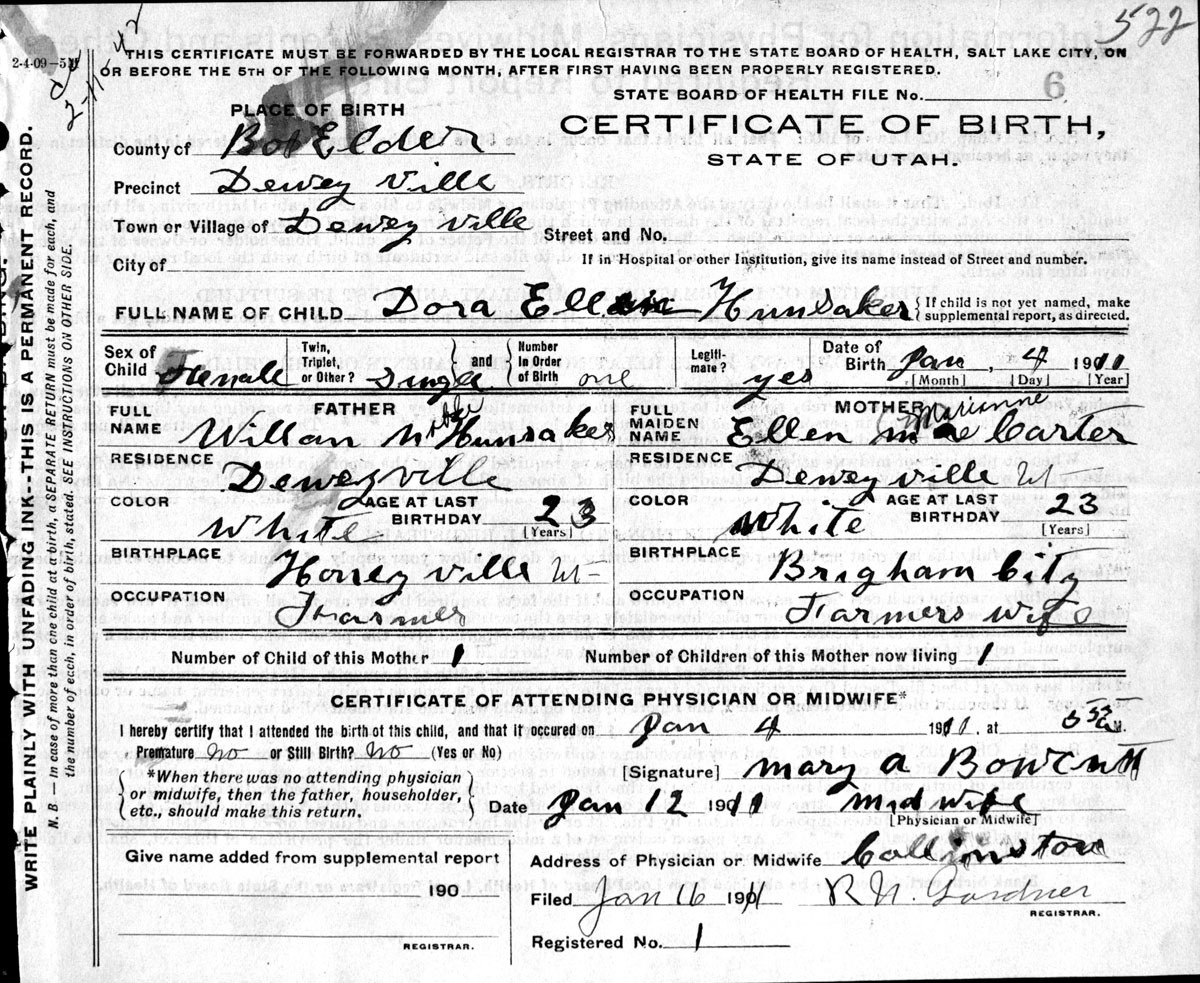 522
2-4-09-5M
THIS CERTIFICATE MUST BE FORWARDED BY THE LOCAL REGISTRAR TO THE STATE BOARD OF HEALTH, SALT LAKE CITY, ON
OR BEFORE THE 5TH OF THE FOLLOWING MONTH, AFTER FIRST HAVING BEEN PROPERLY REGISTERED.
STATE BOARD OF HEALTH FILE No. 6
PLACE OF BIRTH
CERTIFICATE OF BIRTH,
STATE OF UTAH.
County of Box Elder
Precinct Dewey ville
Town or Village of Dewey ville Street and No.
City of If in Hospital or other Institution, give its name instead of Street and number.
FULL NAME OF CHILD Dora Ellen Hunsaker { If child is not yet named, make supplemental report, as directed.
Sex of Child Female Twin, Triplet, or Other? single and Number in Order of Birth one Legitimate? yes Date of Birth Jan 4 1911
[Month] [Day] [Year]
FATHER MOTHER
FULL NAME Hunsaker FULL MAIDEN NAME Ellen Marianne Carter
RESIDENCE Deweyville RESIDENCE Dewey ville Ut
COLOR White AGE AT LAST BIRTHDAY 23 [Years] COLOR White AGE AT LAST BIRTHDAY 23 [Years]
BIRTHPLACE Honey ville Ut BIRTHPLACE Brigham City
OCCUPATION Farmer OCCUPATION Farmers wife
Number of Child of this Mother 1 Number of Children of this Mother now living 1
CERTIFICATE OF ATTENDING PHYSICIAN OR MIDWIFE*
I hereby certify that I attended the birth of this child, and that it occured on Jan 4 1911. at M.
Premature no or Still Birth? No (Yes or No)
*When there was no attending physician
or midwife, then the father, householder,
etc., should make this return.
[Signature] Mary A Bowcutt
Date Jan 12 1911 Midwife
[Physician or Midwife]
Give name added from supplemental report
190
REGISTRAR.
Address of Physician or Midwife Collinston
Filed Jan 16 1911 R N. Gardner
REGISTRAR.
Registered No. 1
WRITE PLAINLY WITH UNFADING INK--THIS IS A PERMANENT RECORD.
N. B. — In case of more than one child at a birth, a SEPARATE RETURN must be made for each, and
the number of each, in order of birth, stated. SEE INSTRUCTIONS ON OTHER SIDE.